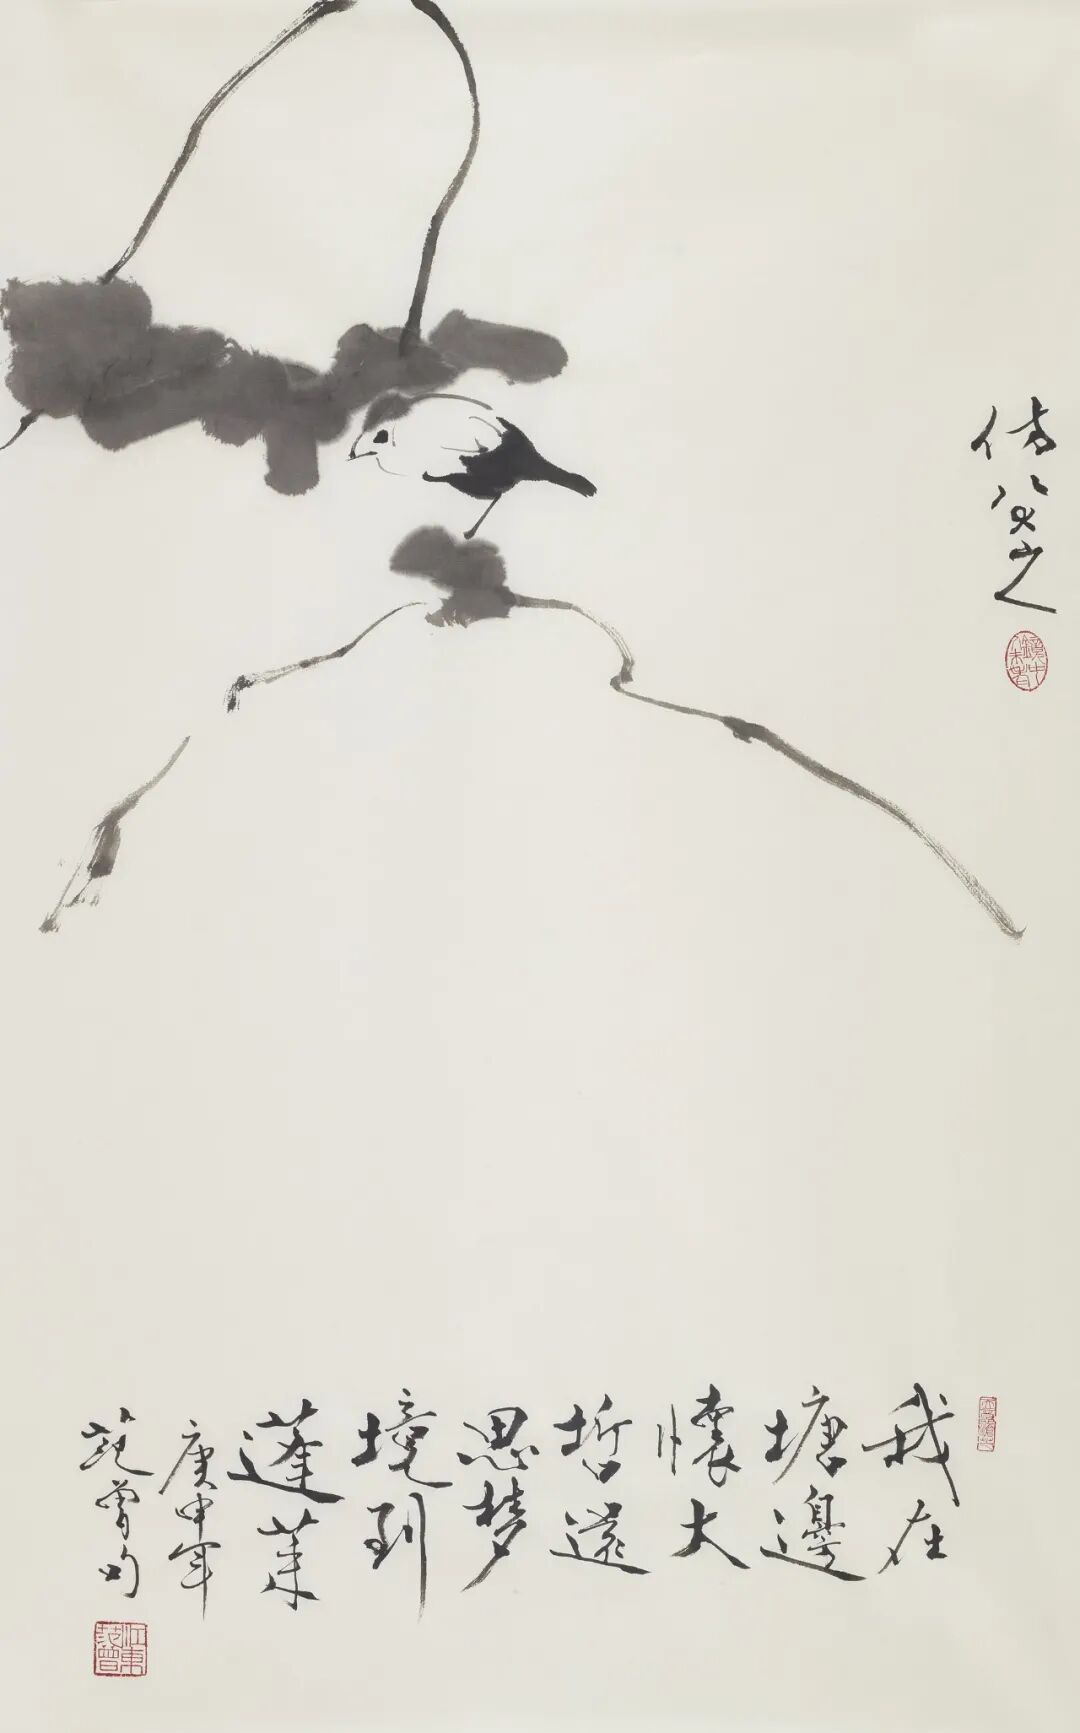 仿八大山人
我在
塘邊
懷大
哲還
思夢
境到
蓬莱
庚申年
范曾句
江東范曾